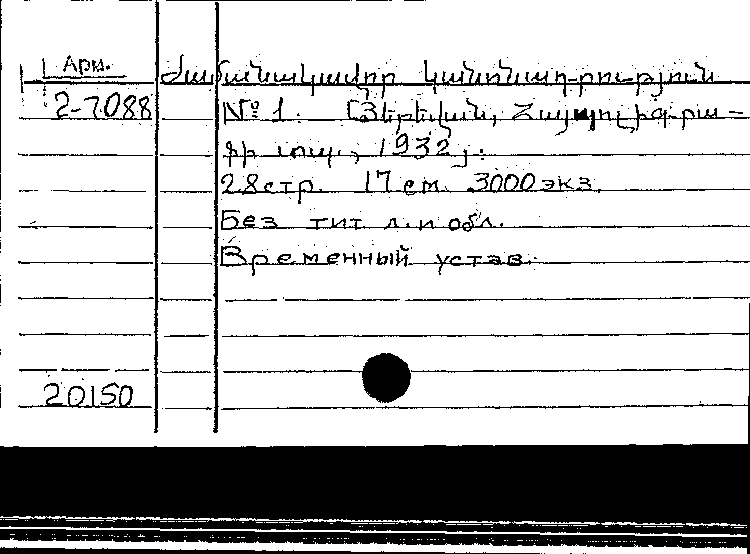 Арм.
Ժամանակավոր կանոնադրություն
2-7088
№ 1. [Յերեվան, Հայպոլիգրա-
ֆի տպ., 1932]:
28 стр. 17 см. 3000 экз.
Без тит л. и обл.
Временный устав.
20150